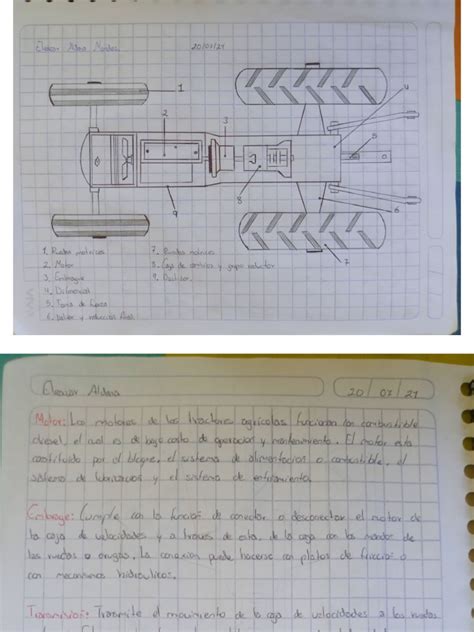 Eleacar Aldana Mendez 20/07/21
1
2
3
4
5
6
7
8
9
1. Ruedas motrices 7. Ruedas motrices
2. Motor 8. Caja de cambios y grupo reductor
3. Embrague 9. 
4. Diferencial
5. Toma de fuerza
6. y reduccion final
Eleacar Aldana 20/07/21
Motor: Los motores de los tractores agrícolas funcionan con combustible
diesel, el cual es de bajo costo de operacion y mantenimiento. El motor esta
constituido por el bloque, el sistema de alimentacion o combustible, el
sistema de lubricacion y el sistema de enfriamiento.
Embrage: Cumple con la función de conectar o desconectar el motor de
la caja de velocidades y a traves de esta, de la caja con los mandos de
las ruedas o orugas. La conexion puede hacerse con platos de friccion o
con mecanismos hidraulicos.
Transmision: Trasmite el movimiento de la caja de velocidades a las ruedas